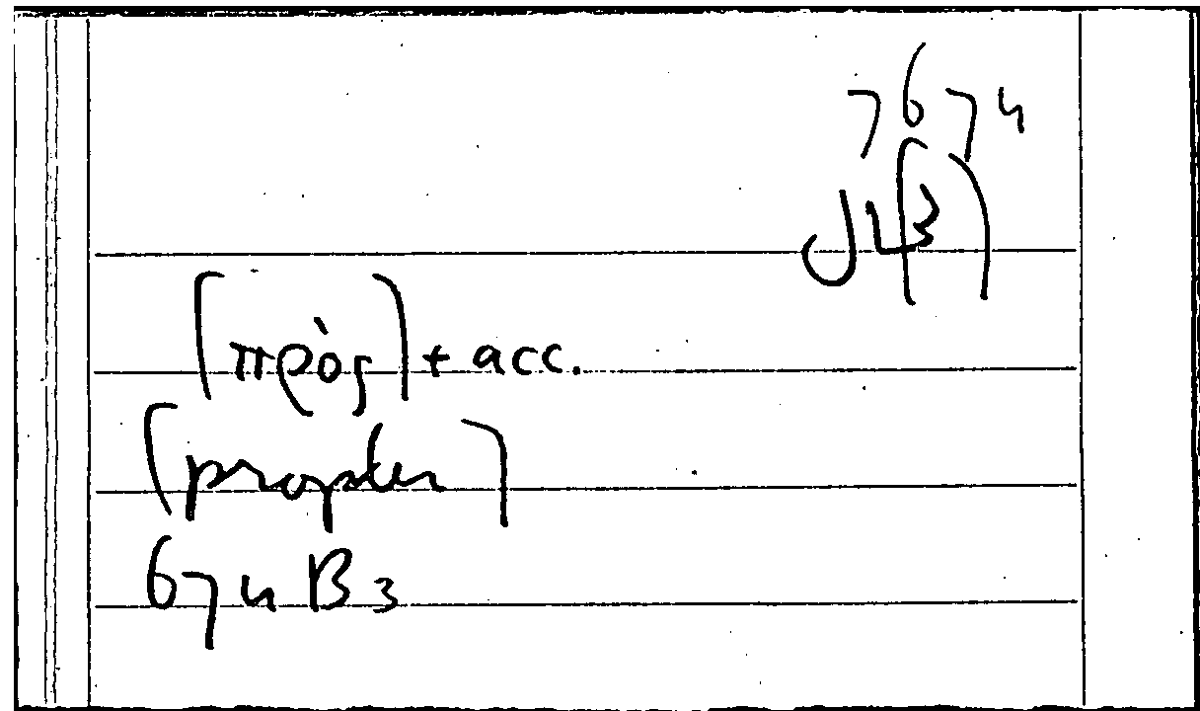 7674
[πρὸς] + acc.
[propter]
674 B 3